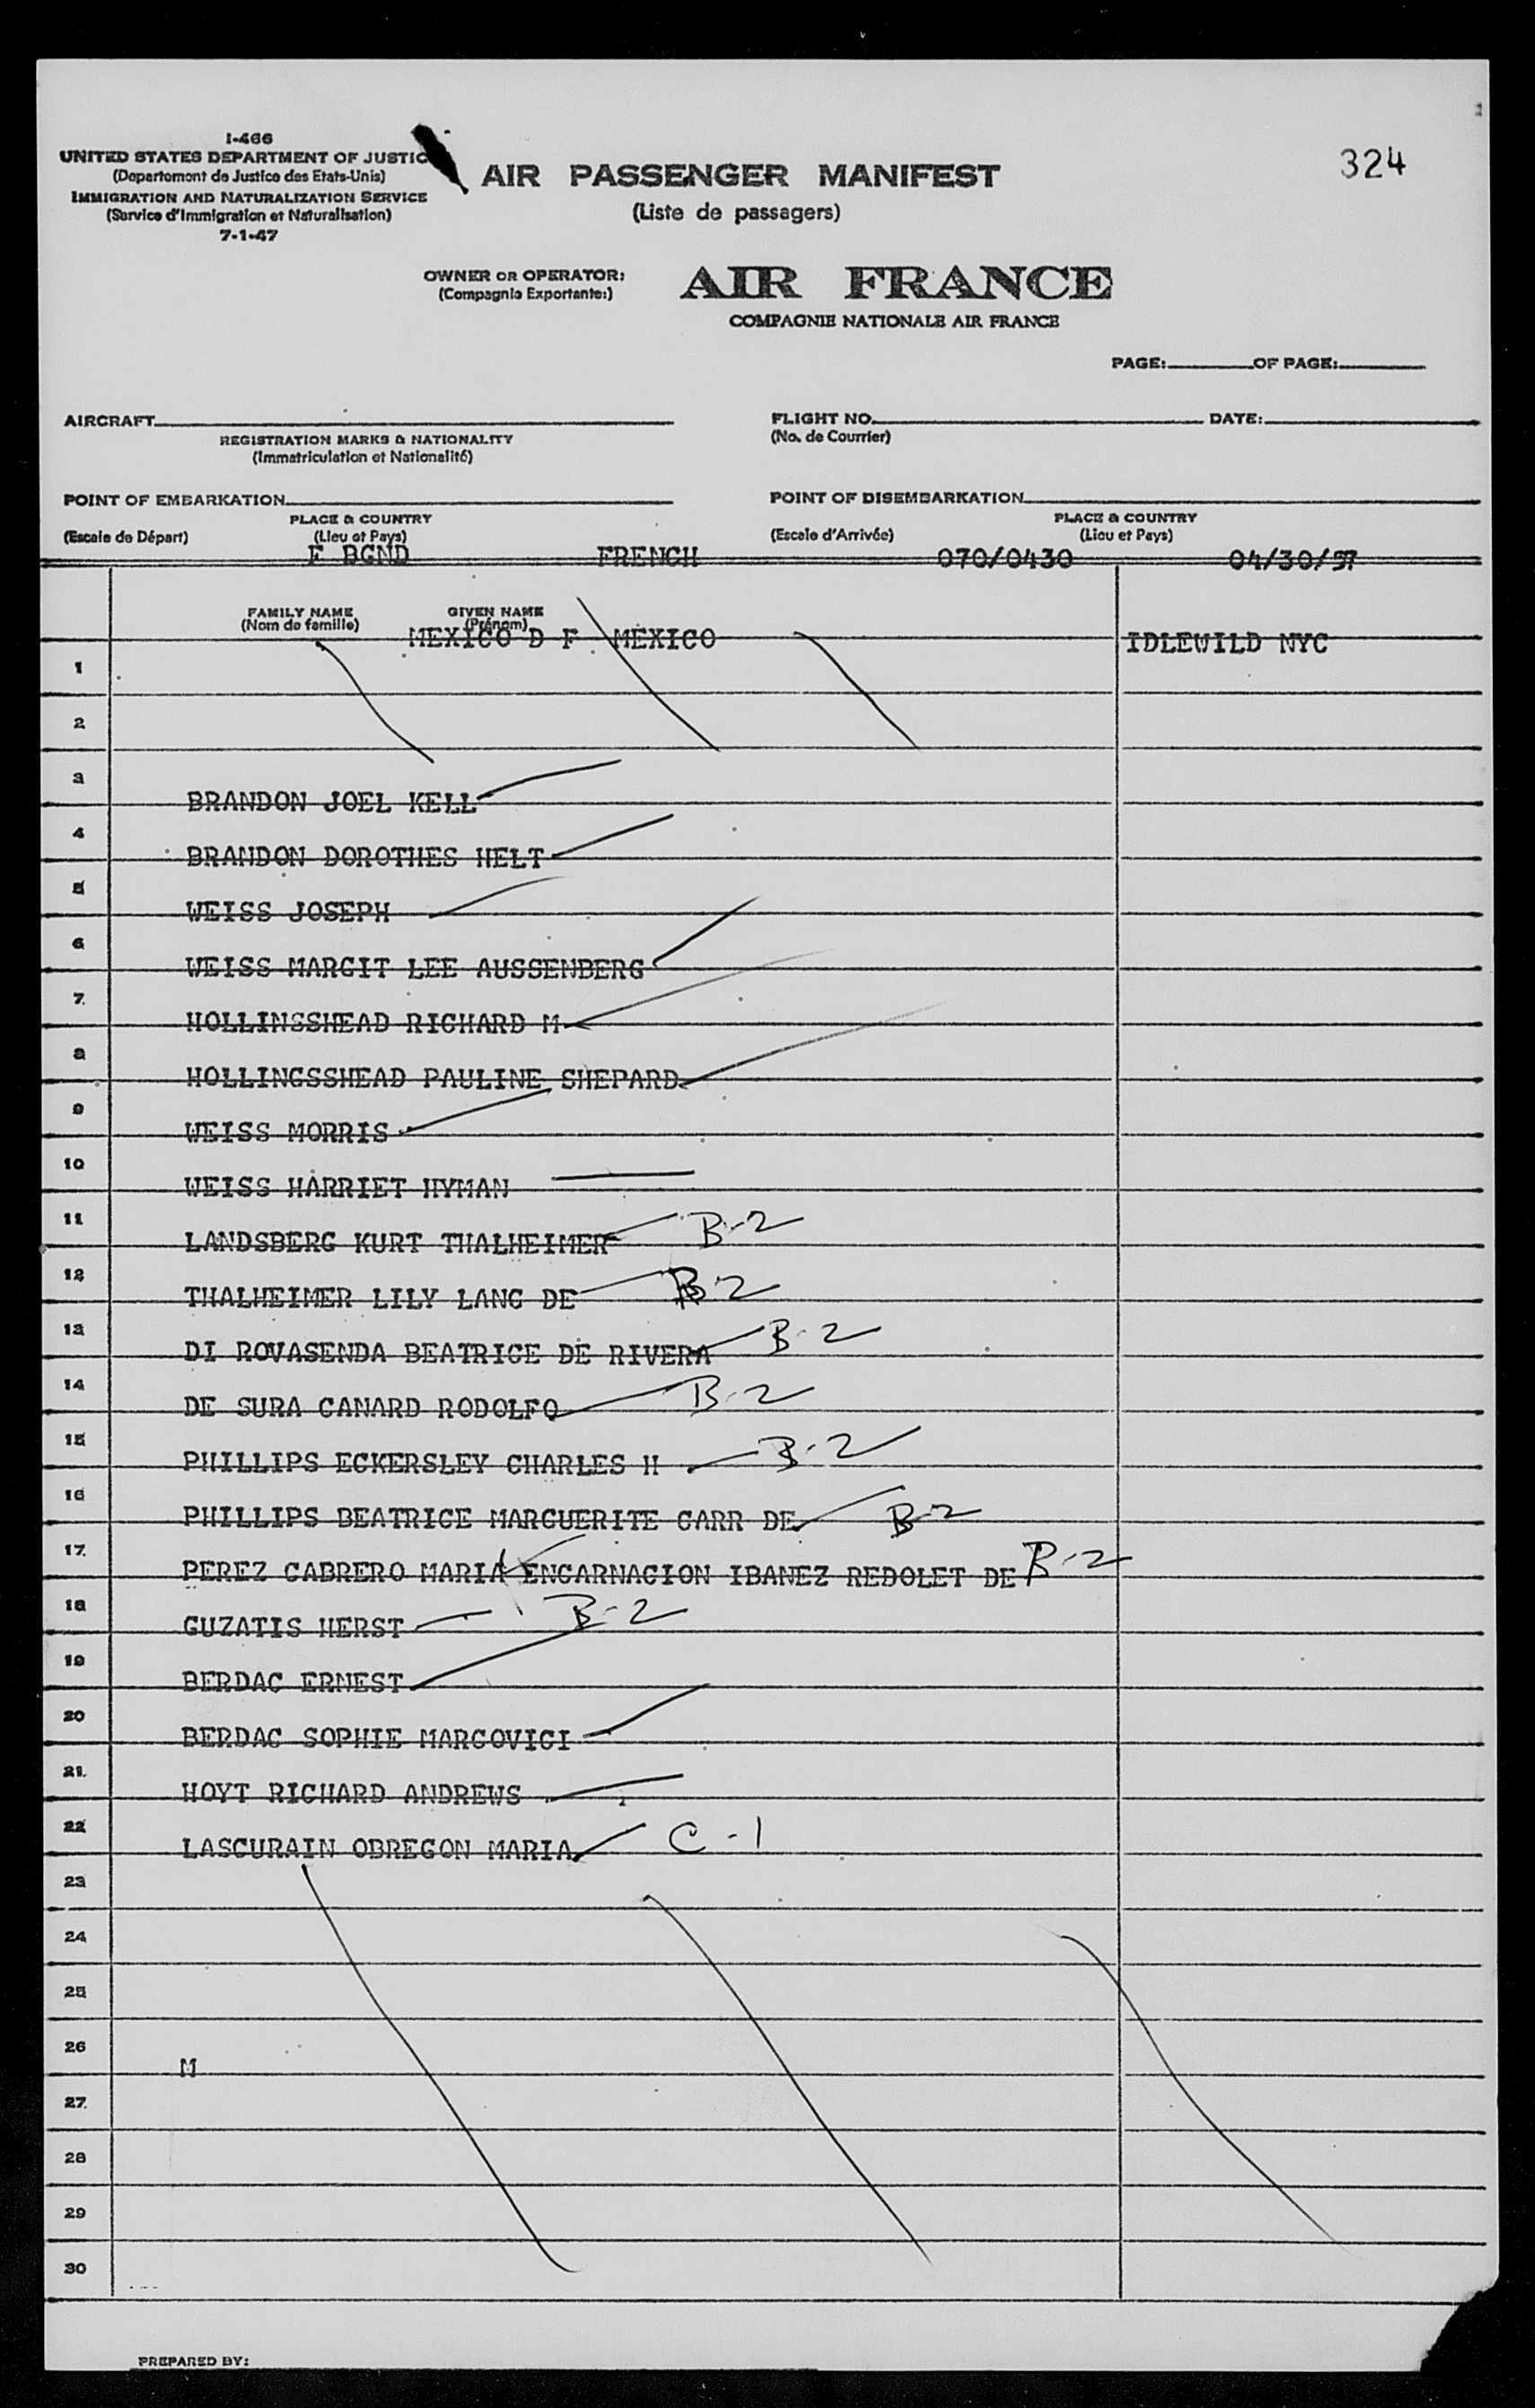 324
I-466
UNITED STATES DEPARTMENT OF JUSTIC
(Departement de Justice des Etats-Unis)
IMMIGRATION AND NATURALIZATION SERVICE
(Service d'Immigration et Naturalisation)
7-1-47
AIR PASSENGER MANIFEST
(Liste de passagers)
OWNER OR OPERATOR: AIR FRANCE
(Compagnie Exportante:)
COMPAGNIE NATIONALE AIR FRANCE
PAGE: OF PAGE:
AIRCRAFT FLIGHT NO. DATE:
REGISTRATION MARKS & NATIONALITY (No. de Courrier)
(Immatriculation et Nationalité)
POINT OF EMBARKATION POINT OF DISEMBARKATION
PLACE & COUNTRY PLACE & COUNTRY
(Escale de Départ) (Lieu et Pays) (Escale d'Arrivée) (Lieu et Pays)
F BGND FRENCH 070/0430 04/30/57
FAMILY NAME GIVEN NAME
(Nom de famille) (Prénom)
MEXICO D F MEXICO IDLEWILD NYC
1
2
3 BRANDON JOEL KELL
4 BRANDON DOROTHES HELT
5 WEISS JOSEPH
6 WEISS MARGIT LEE AUSSENBERG
7 HOLLINGSHEAD RICHARD M
8 HOLLINGSSHEAD PAULINE SHEPARD
9 WEISS MORRIS
10 WEISS HARRIET HYMAN
11 LANDSBERG KURT THALHEIMER B-2
12 THALHEIMER LILY LANG DE B-2
13 DI ROVASENDA BEATRICE DE RIVERA B-2
14 DE SURA CANARD RODOLFO B-2
15 PHILLIPS ECKERSLEY CHARLES H B-2
16 PHILLIPS BEATRICE MARGUERITE CARR DE B-2
17 PEREZ CABRERO MARIA ENCARNACION IBANEZ REDOLET DE B-2
18 GUZATIS HERST B-2
19 BERDAC ERNEST
20 BERDAC SOPHIE MARCOVICI
21 HOYT RICHARD ANDREWS
22 LASCURAIN OBREGON MARIA C-1
23
24
25
26 M
27
28
29
30
PREPARED BY: